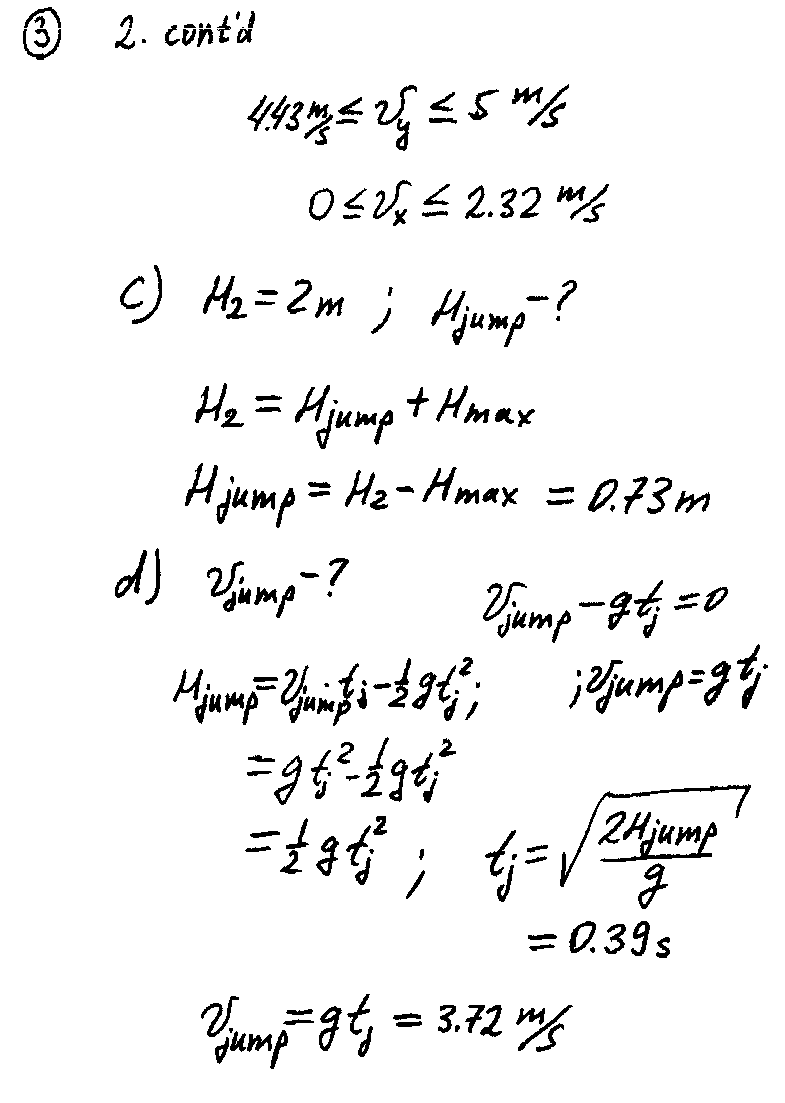 ③ 2. cont'd
4.43 m/s ≤ v_y ≤ 5 m/s
0 ≤ v_x ≤ 2.32 m/s
c) H_2 = 2m ; H_jump - ?
H_2 = H_jump + H_max
H_jump = H_2 - H_max = 0.73m
d) v_jump - ? v_jump - gt_j = 0
H_jump = v_jump t_j - 1/2 gt_j^2; ; v_jump = gt_j
= gt_j^2 - 1/2 gt_j^2
= 1/2 gt_j^2 ; t_j = √(2H_jump/g)
= 0.39s
v_jump = gt_j = 3.72 m/s